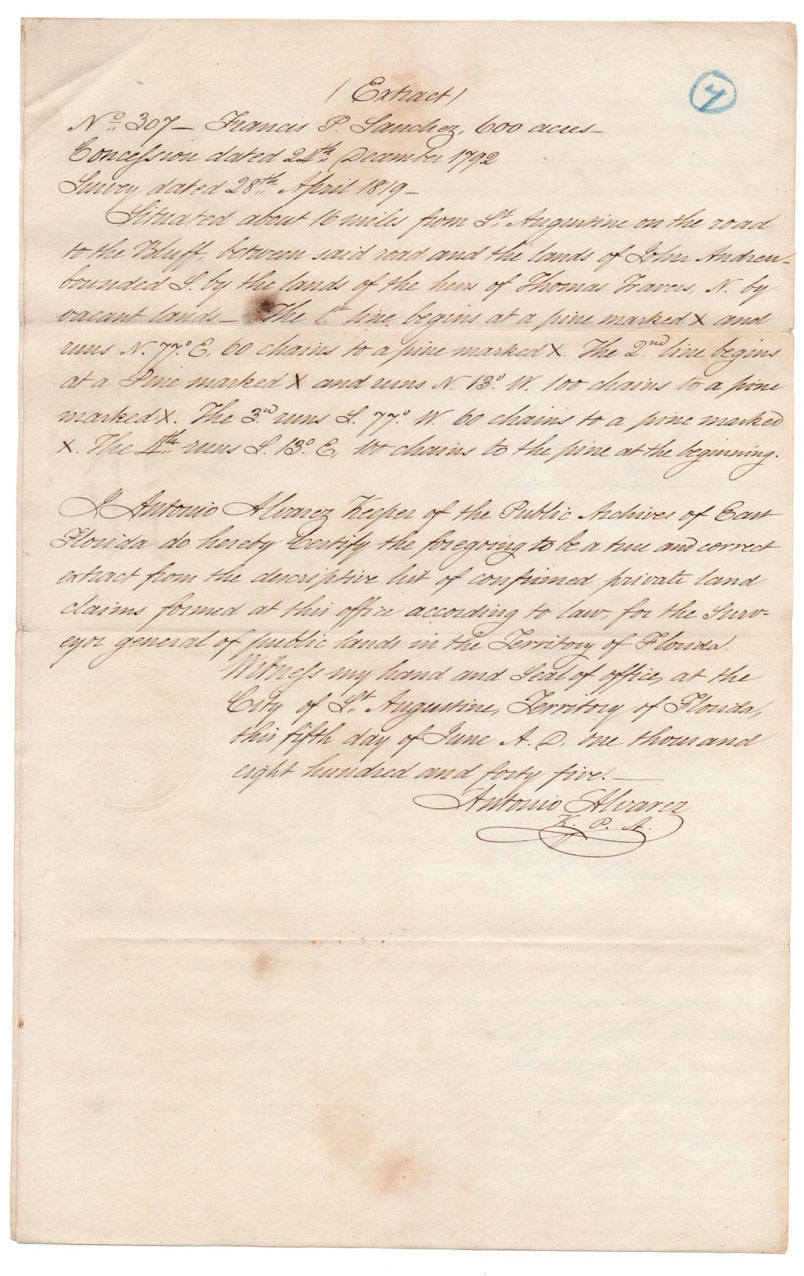 (Extract)
7
No. 307 — Francis P. Sanchez, 600 acres —
Concession dated 24th December 1792
Survey dated 28th April 1819 —
Situated about 16 miles from St. Augustine on the road
to the Bluff, between said road and the lands of John Andrew —
bounded S. by the lands of the heirs of Thomas Travers, N. by
vacant lands — The 1st line begins at a pine marked X and
runs N. 77° E. 60 chains to a pine marked X. The 2nd line begins
at a Pine marked X and runs N. 13° W. 100 chains to a pine
marked X. The 3rd runs S. 77° W. 60 chains to a pine marked
X. The 4th runs S. 13° E. 100 chains to the pine at the beginning.
I Antonio Alvarez Keeper of the Public Archives of East
Florida do hereby Certify the foregoing to be a true and correct
extract from the descriptive list of confirmed private land
claims formed at this office according to law, for the Surv-
eyor general of public lands in the Territory of Florida.
Witness my hand and Seal of office, at the
City of St. Augustine, Territory of Florida,
this fifth day of June A. D. one thousand
eight hundred and forty five. —
Antonio Alvarez
K. P. A.